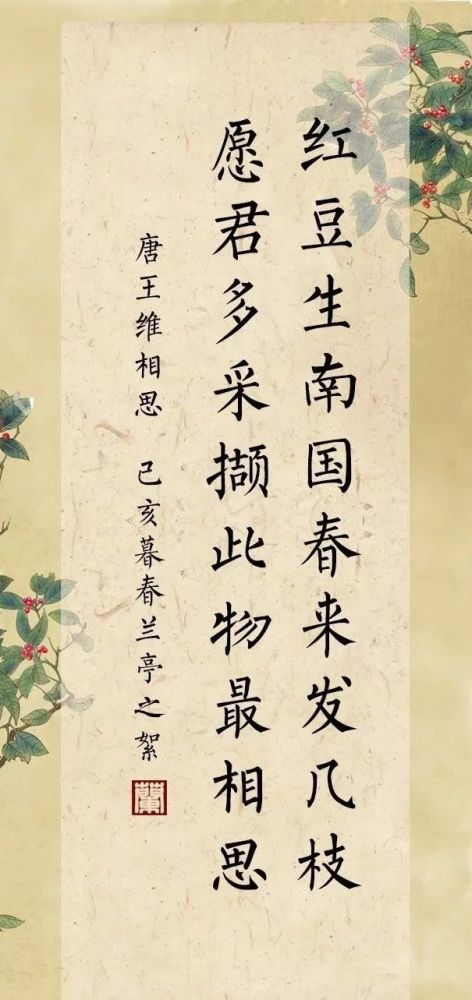 红豆生南国春来发几枝
愿君多采撷此物最相思
唐王维相思 己亥暮春兰亭之絮
蘭